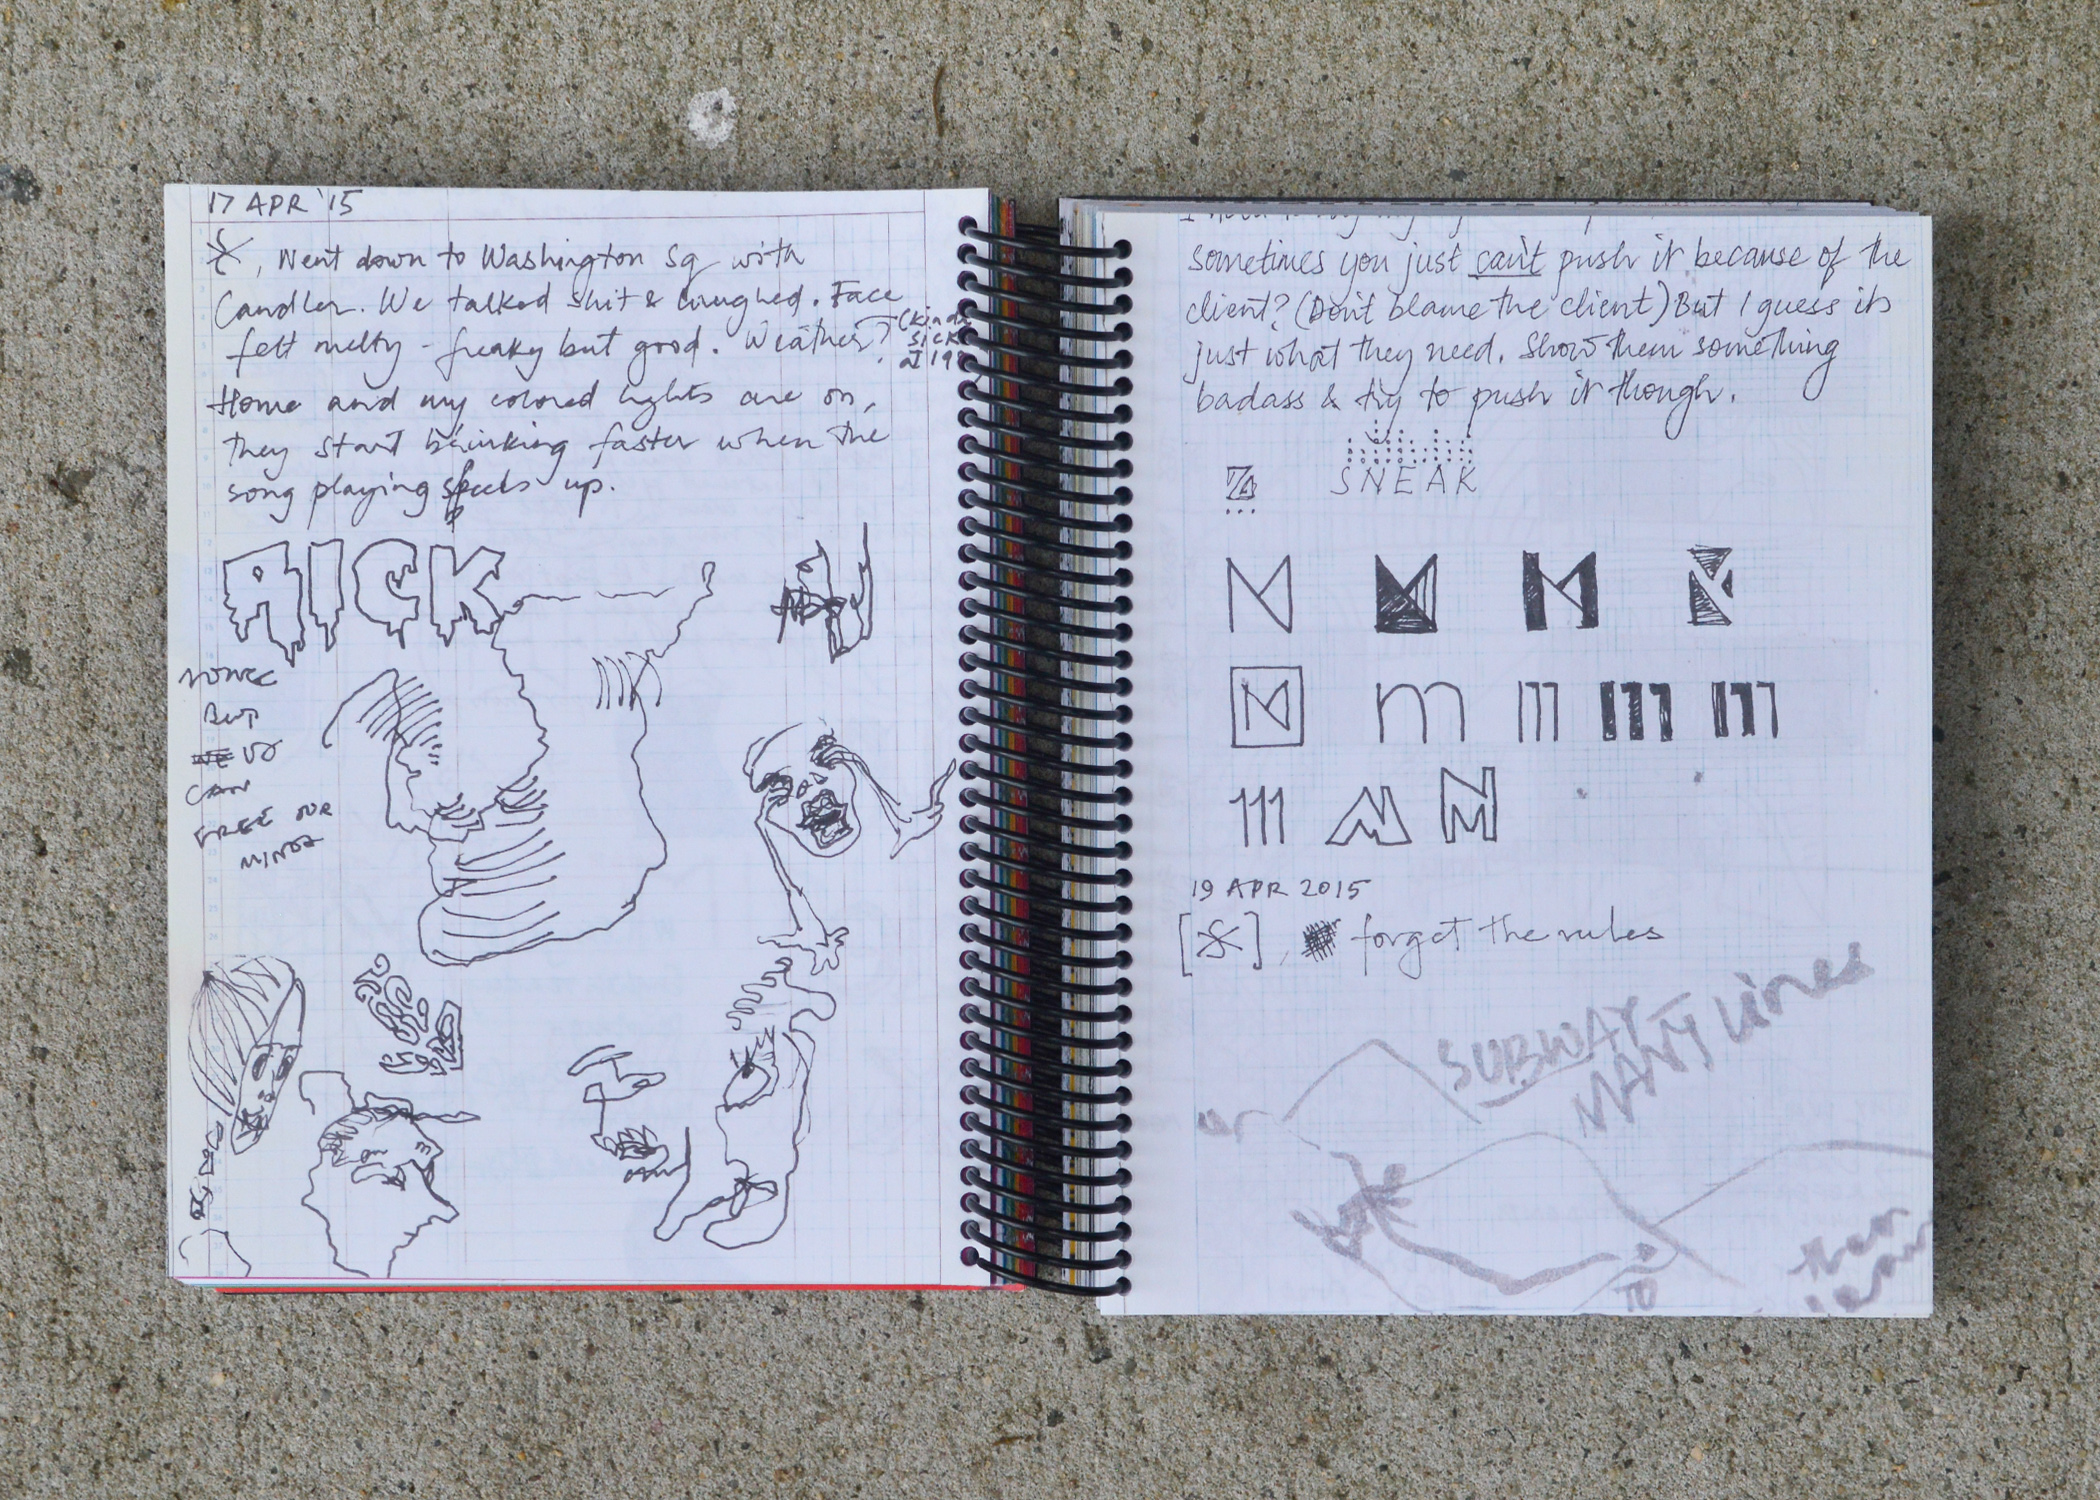 17 APR '15
, Went down to Washington Sq with
Candler. We talked shit & laughed. Face
felt melty - freaky but good. Weather?
(kinda
sick
at 19
Home and my colored lights are on,
they start blinking faster when the
song playing speeds up.
RICK
NONE
BUT
WE US
CAN
FREE OUR
MINDS
sometimes you just can't push it because of the
client? (Don't blame the client) But I guess its
just what they need. Show them something
badass & try to push it though.
SNEAK
M M M
M m m m m
m M M
19 APR 2015
[ ], forget the rules
SUBWAY
MANY Lines
TO